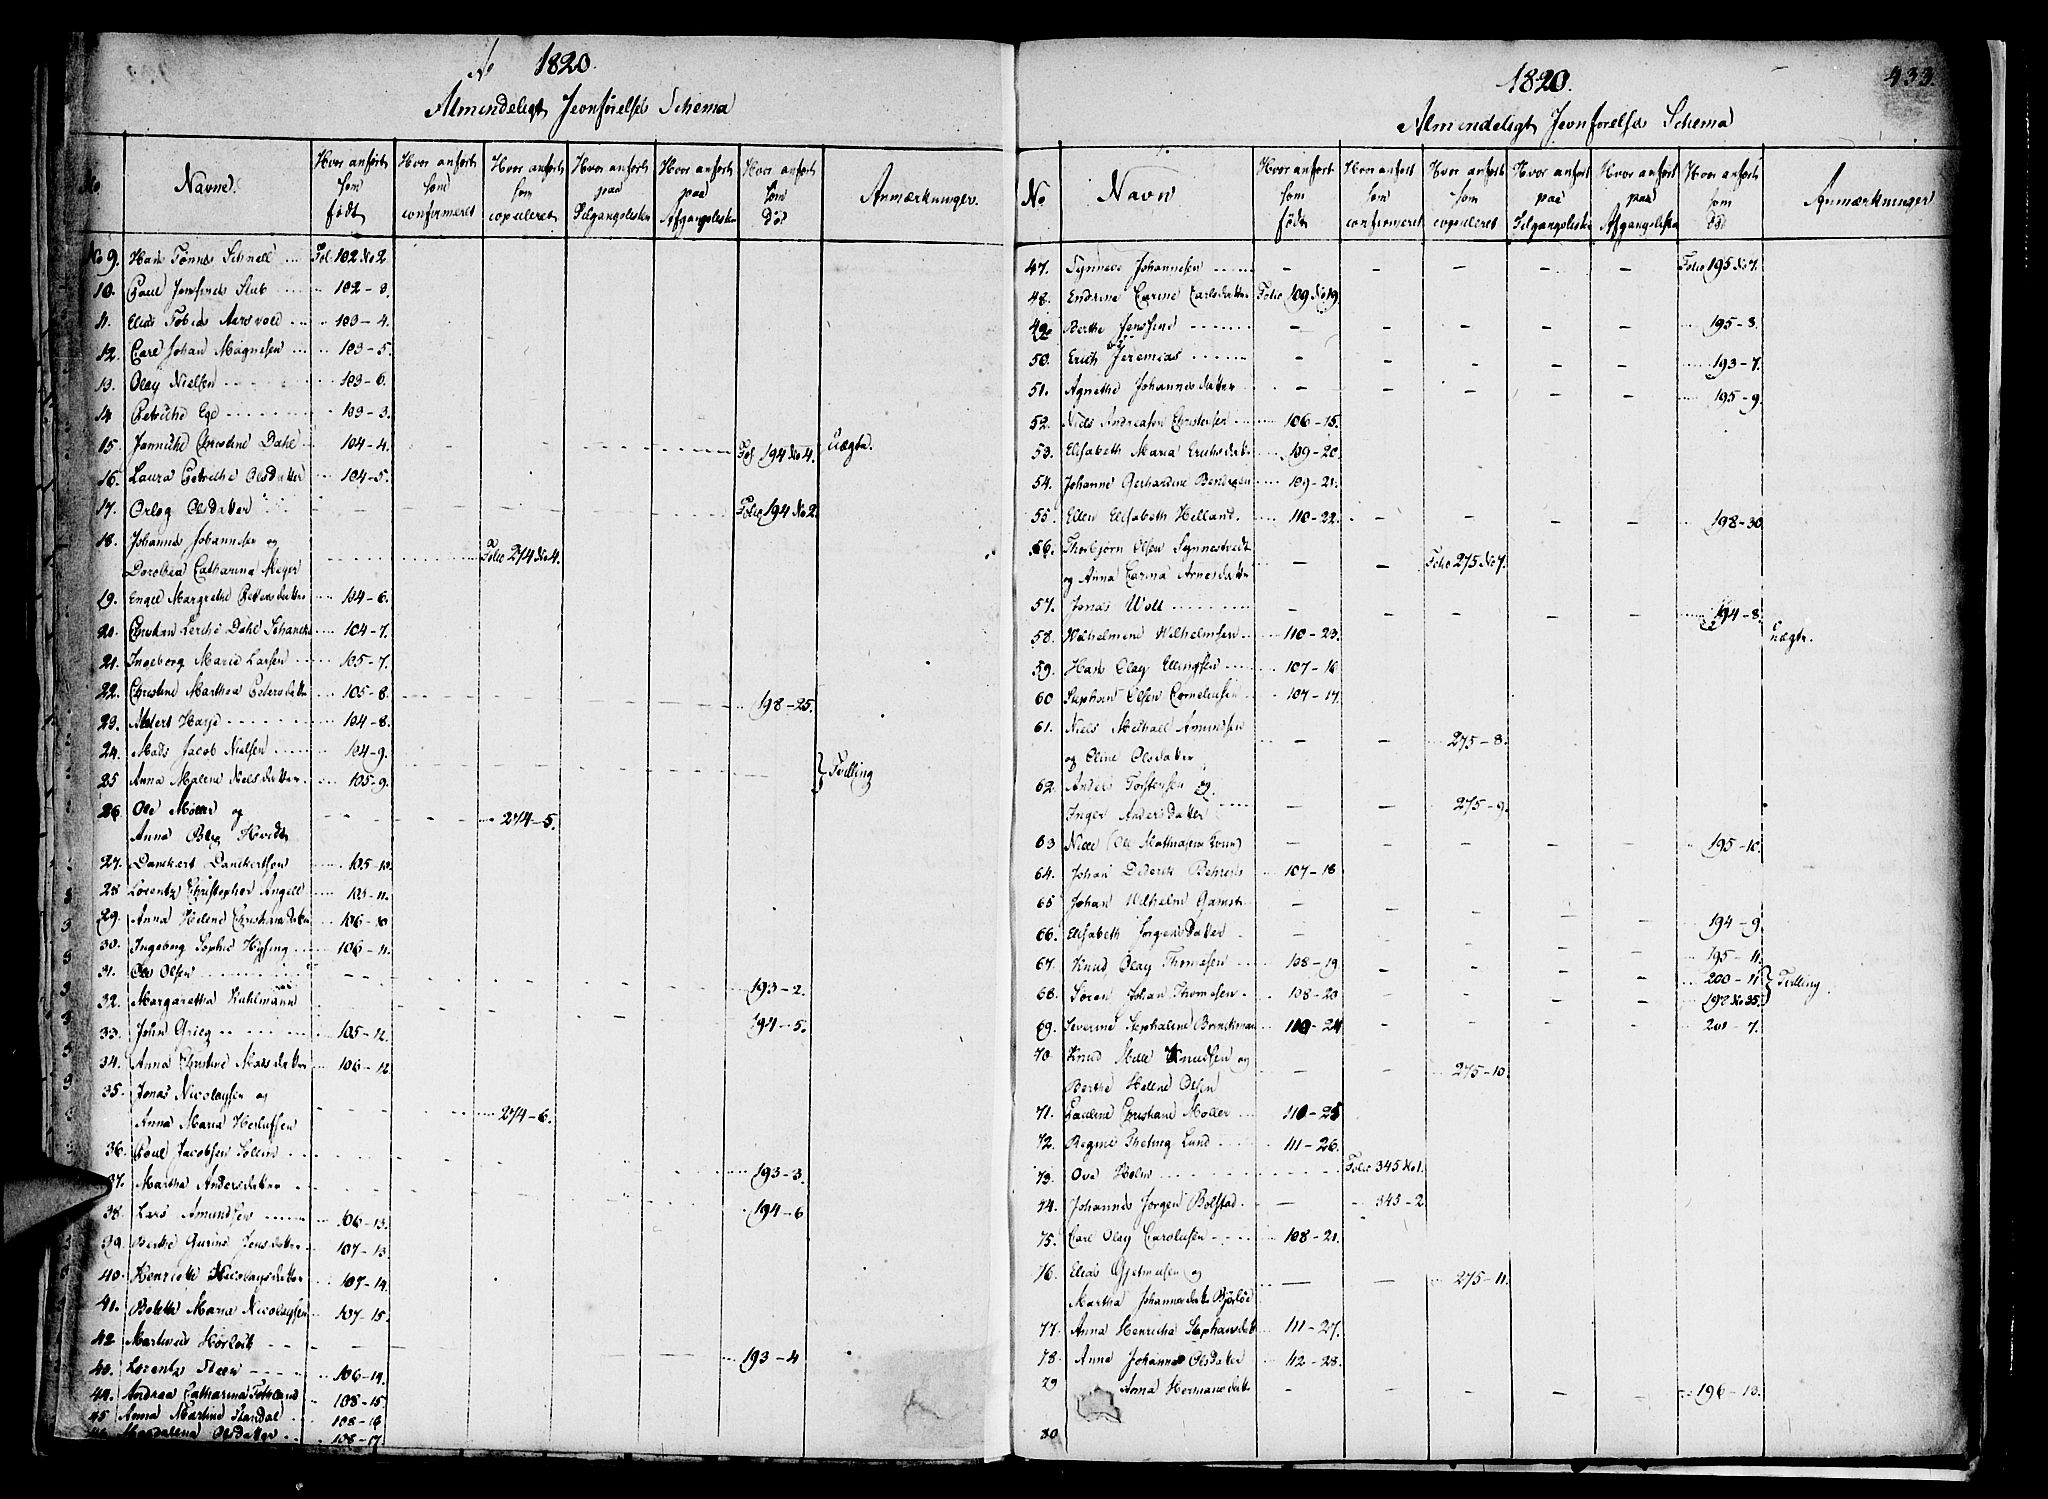 No 1820.
Almindeligt Jevnførelses Schema
No
Navne.
Hvor anført som født
Hvor anført som confirmeret
Hvor anført som copuleret
Hvor anført paa Tilgangslisten
Hvor anført paa Afgangslisten
Hvor anført som død
Anmærkninger.
No 9. Hans Tønnes Schnell Fol. 102 No 2.
10. Poul Jensenius Stub 102 - 3.
11. Elias Tobias Aarsvold 103 - 4.
12. Carl Johan Magnesen 103 - 5.
13. Olay Nielsen 103 - 6.
14 Petriche Ege 103 - 3.
15. Janniche Christine Dahl 104 - 4. Fol 194 No 4. Uægte.
16. Laura Petriche Olsdatter 104 - 5.
17. Orleg Olsdatter Folio 194 No 2.
18. Johannes Johannesen og
Dorothea Catharina Meyer Folio 274 No 4.
19. Engel Margrethe Petersdatter 104 - 6.
20. Christian Lerche Dahl Schanche 104 - 7.
21. Ingeborg Marie Larsen 105 - 7.
22. Christine Marthea Petersdatter 105 - 8. 198 - 25.
23. Ahlert Harje 104 - 8.
24. Mads Jacob Nielsen 104 - 9.
25 Anna Malene Nielsdatter 105 - 9. } Tvilling
26. Ole Møller og
Anna Hvidt 274 - 5.
27. Danckert Danckertsen 105 - 10.
28 Lorentz Christopher Angell 105 - 11.
29. Anna Helene Christiansdatter 106 - 10
30. Ingeborg Sophie Hysing 106 - 11.
31. Ole Olsen 193 - 2.
32. Margaretha Kuhlmann 194 - 5.
33. John Grieg 105 - 12.
34. Anna Christine Nielsdatter 106 - 12
35. Jonas Nicolaysen og
Anna Maria Herlufsen 274 - 6.
36. Poul Jacobsen Solem 193 - 3.
37. Martha Andersdatter 194 - 6
38. Lars Amundsen 106 - 13.
39. Berthe Gurine Jensdatter 107 - 13.
40. Henriette Nicolaysdatter 107 - 14.
41. Bolette Marie Nicolaysen 107 - 15.
42 Martinus Hørlock 193 - 4
43. Lorentz Steen 106 - 14.
44. Andrea Catharina 108 - 15
45 Anna Martine Standal 108 - 16
46. Magdalena Olsdatter 108 - 17.
1820.
433
Almindeligt Jevnførelses Schema
No
Navn
Hvor anført som født
Hvor anført som confirmeret
Hvor anført som copuleret
Hvor anført paa Tilgangsliste
Hvor anført paa Afgangslista
Hvor anført som død
Anmærkninger
47. Synneve Johannesen Folio 195 No 7.
48. Endrine Carine Carlsdatter Folio 109 No 19
49. Berthe Jensine 195 - 8.
50. Erich Jeremias 193 - 7.
51. Agnethe Johannesdatter 195 - 9.
52. Niels Andreasen Christensen 106 - 15.
53. Elisabeth Maria Erichsdatter 109 - 20.
54. Johanne Gerhardine Bendixen 109 - 21.
55. Ellen Elisabeth Helland. 110 - 22. 198 - 30.
56. Thorbjørn Olsen Synnestvedt
og Anna Carina Arnesdatter Folio 275 No 7.
57. Jonas Woll 194 - 8.
58. Wilhelmine Wilhelmsen 110 - 23. Uægte.
59. Hans Olay Ellingsen 107 - 16
60 Stephan Olsen Corneliusen 107 - 17.
61. Niels Michael Amundsen
og Oline Olsdatter 275 - 8.
62. Anders Torstensen og
Inger Andersdatter 275 - 9.
63 Nille (Ole Mathiasens Kone) 195 - 10.
64. Johan Diderik Behrens 107 - 18
65 Johan Wilhelm Gamst 194 - 9.
66. Elisabeth Jørgensdatter 195 - 11.
67. Knud Olay Thomesen 108 - 19. 200 - 11 } Tvilling
68. Søren Johan Thomesen. 108 - 20 192 No 35.
69. Severine Stephaline Brinckman 110 - 24 200 - 7.
70. Knud Melle Knudsen og
Berthe Helene Olsen 275 - 10.
71. Pauline Christiane Møller 110 - 25
72. Regine Theting Lund 111 - 26.
73. Ove Holm Folio 345 No 1.
74. Johannes Jørgen Bolstad. 345 - 2.
75. Carl Olay Carolusen 108 - 21.
76. Elias Gjetmusen og
Martha Johannesdatter 275 - 11.
77. Anna Henricha Stephansdatter 111 - 27.
78. Anne Johanna Olsdatter 112 - 28.
79 Anna Hermansdatter 196 - 13.
80